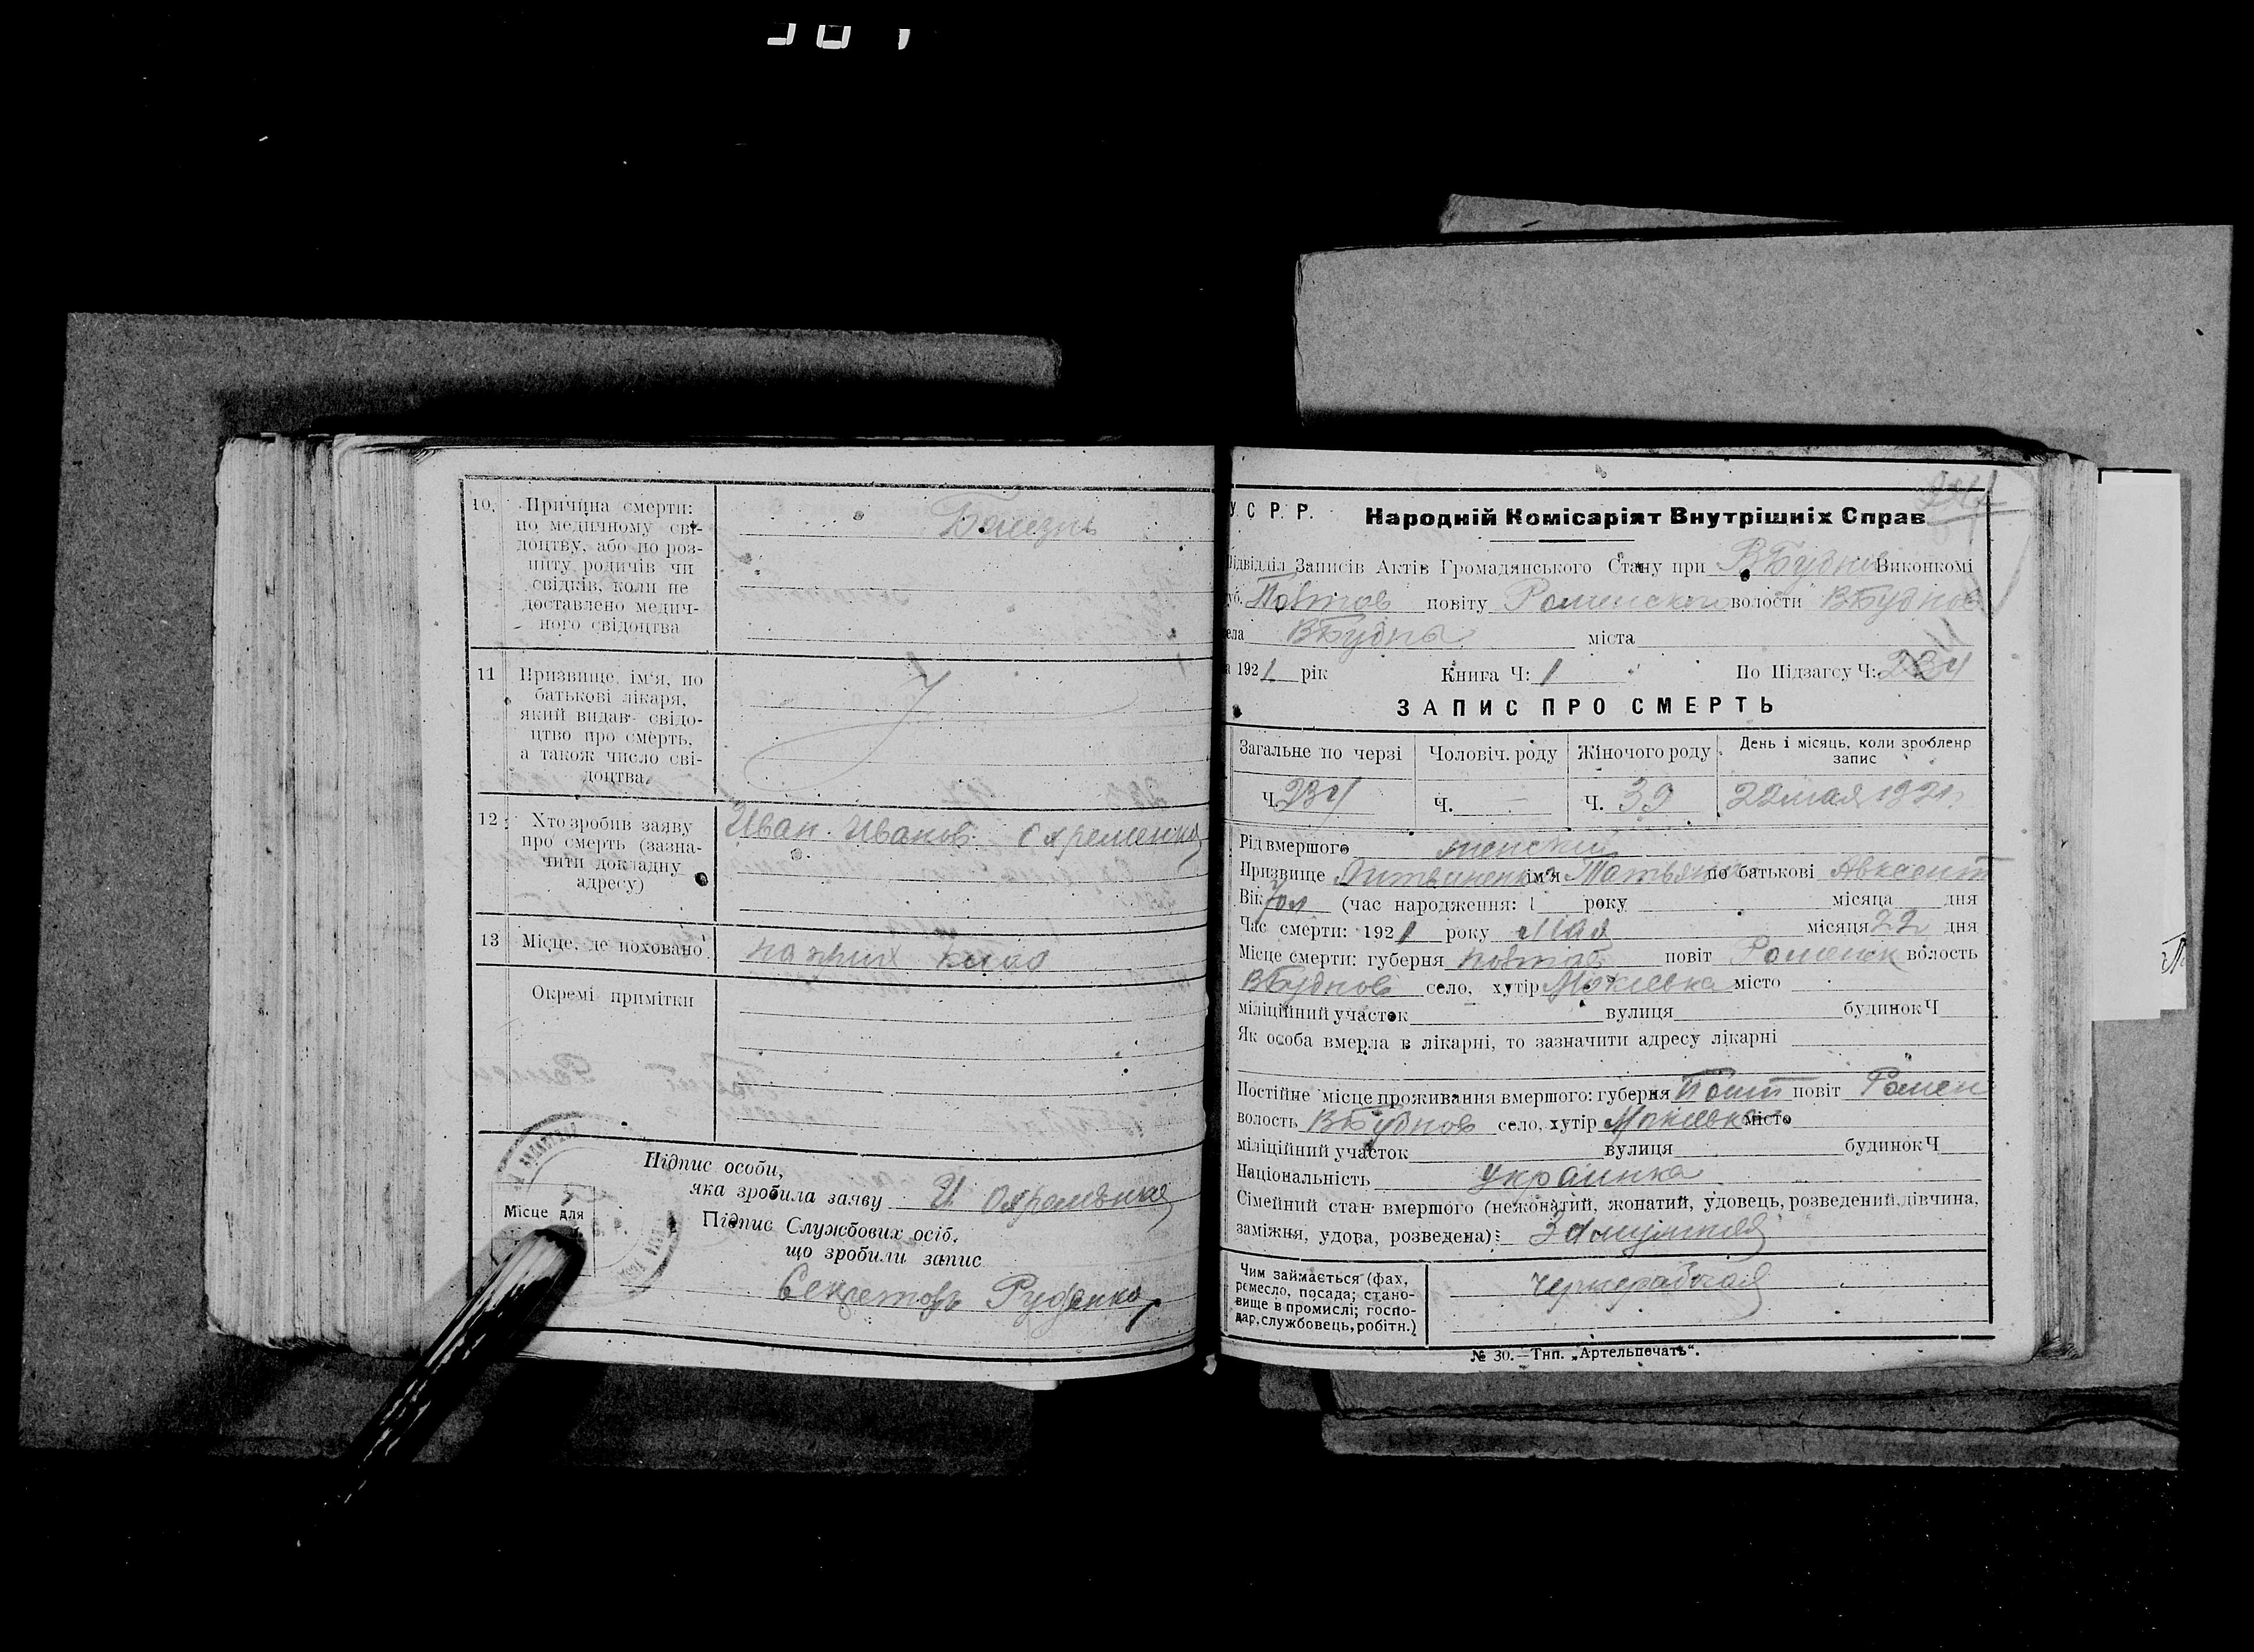 10. Причина смерти:
по медичному сві-
доцтву, або по роз-
питу родичів чи
свідків, коли не
доставлено медич-
ного свідоцтва
Болезнь
11 Призвище, ім'я, по
батькові лікаря,
який видав свідо-
цтво про смерть,
а також число сві-
доцтва.
12 Хто зробив заяву
про смерть (зазна-
чити докладну
адресу)
Иван Иванов Охременко
13 Місце, де поховано
Окремі примітки
Підпис особи,
яка зробила заяву И Охременко
Місце для
Підпис Службових осіб,
що зробили запис
Секретарь Руденко
У С Р. Р. Народній Комісаріят Внутрішніх Справ
Відділ Записів Актів Громадянського Стану при ВБудни Виконкомі
уб. Полтав повіту Роменского волости ВБуднов
ела ВБудны міста
а 1921 рік Книга Ч: 1 По Підзагсу Ч: 234
ЗАПИС ПРО СМЕРТЬ
Загальне по черзі Чоловіч. роду Жіночого роду День і місяць, коли зроблено запис
Ч. 234 Ч. — Ч. 39 22 мая 1921 г
Рід вмершого женский
Призвище Литвиненко ім'я Татьяна по батькові
Вік (час народження: 1 року місяца дня
Час смерти: 1921 року Мая місяця 22 дня
Місце смерти: губерня Полтав повіт Роменск волость
ВБуднов село, хутір місто
міліційний участок вулиця будинок Ч
Як особа вмерла в лікарні, то зазначити адресу лікарні
Постійне місце проживання вмершого: губерня Полт повіт Ромен
волость ВБуднов село, хутір місто
міліційний участок вулиця будинок Ч
Національність украинка
Сімейний стан вмершого (нежонатий, жонатий, удовець, розведений, дівчина,
заміжня, удова, розведена): Замужняя
Чим займається (фах,
ремесло, посада; стано-
вище в промислі; госпо-
дар, службовець, робітн.)
Чернорабочая
№ 30.—Тип. „Артельпечать".